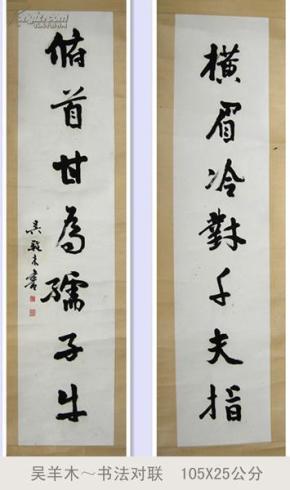 橫眉冷對千夫指
俯首甘為孺子牛
吴羊木～书法对联 105X25公分